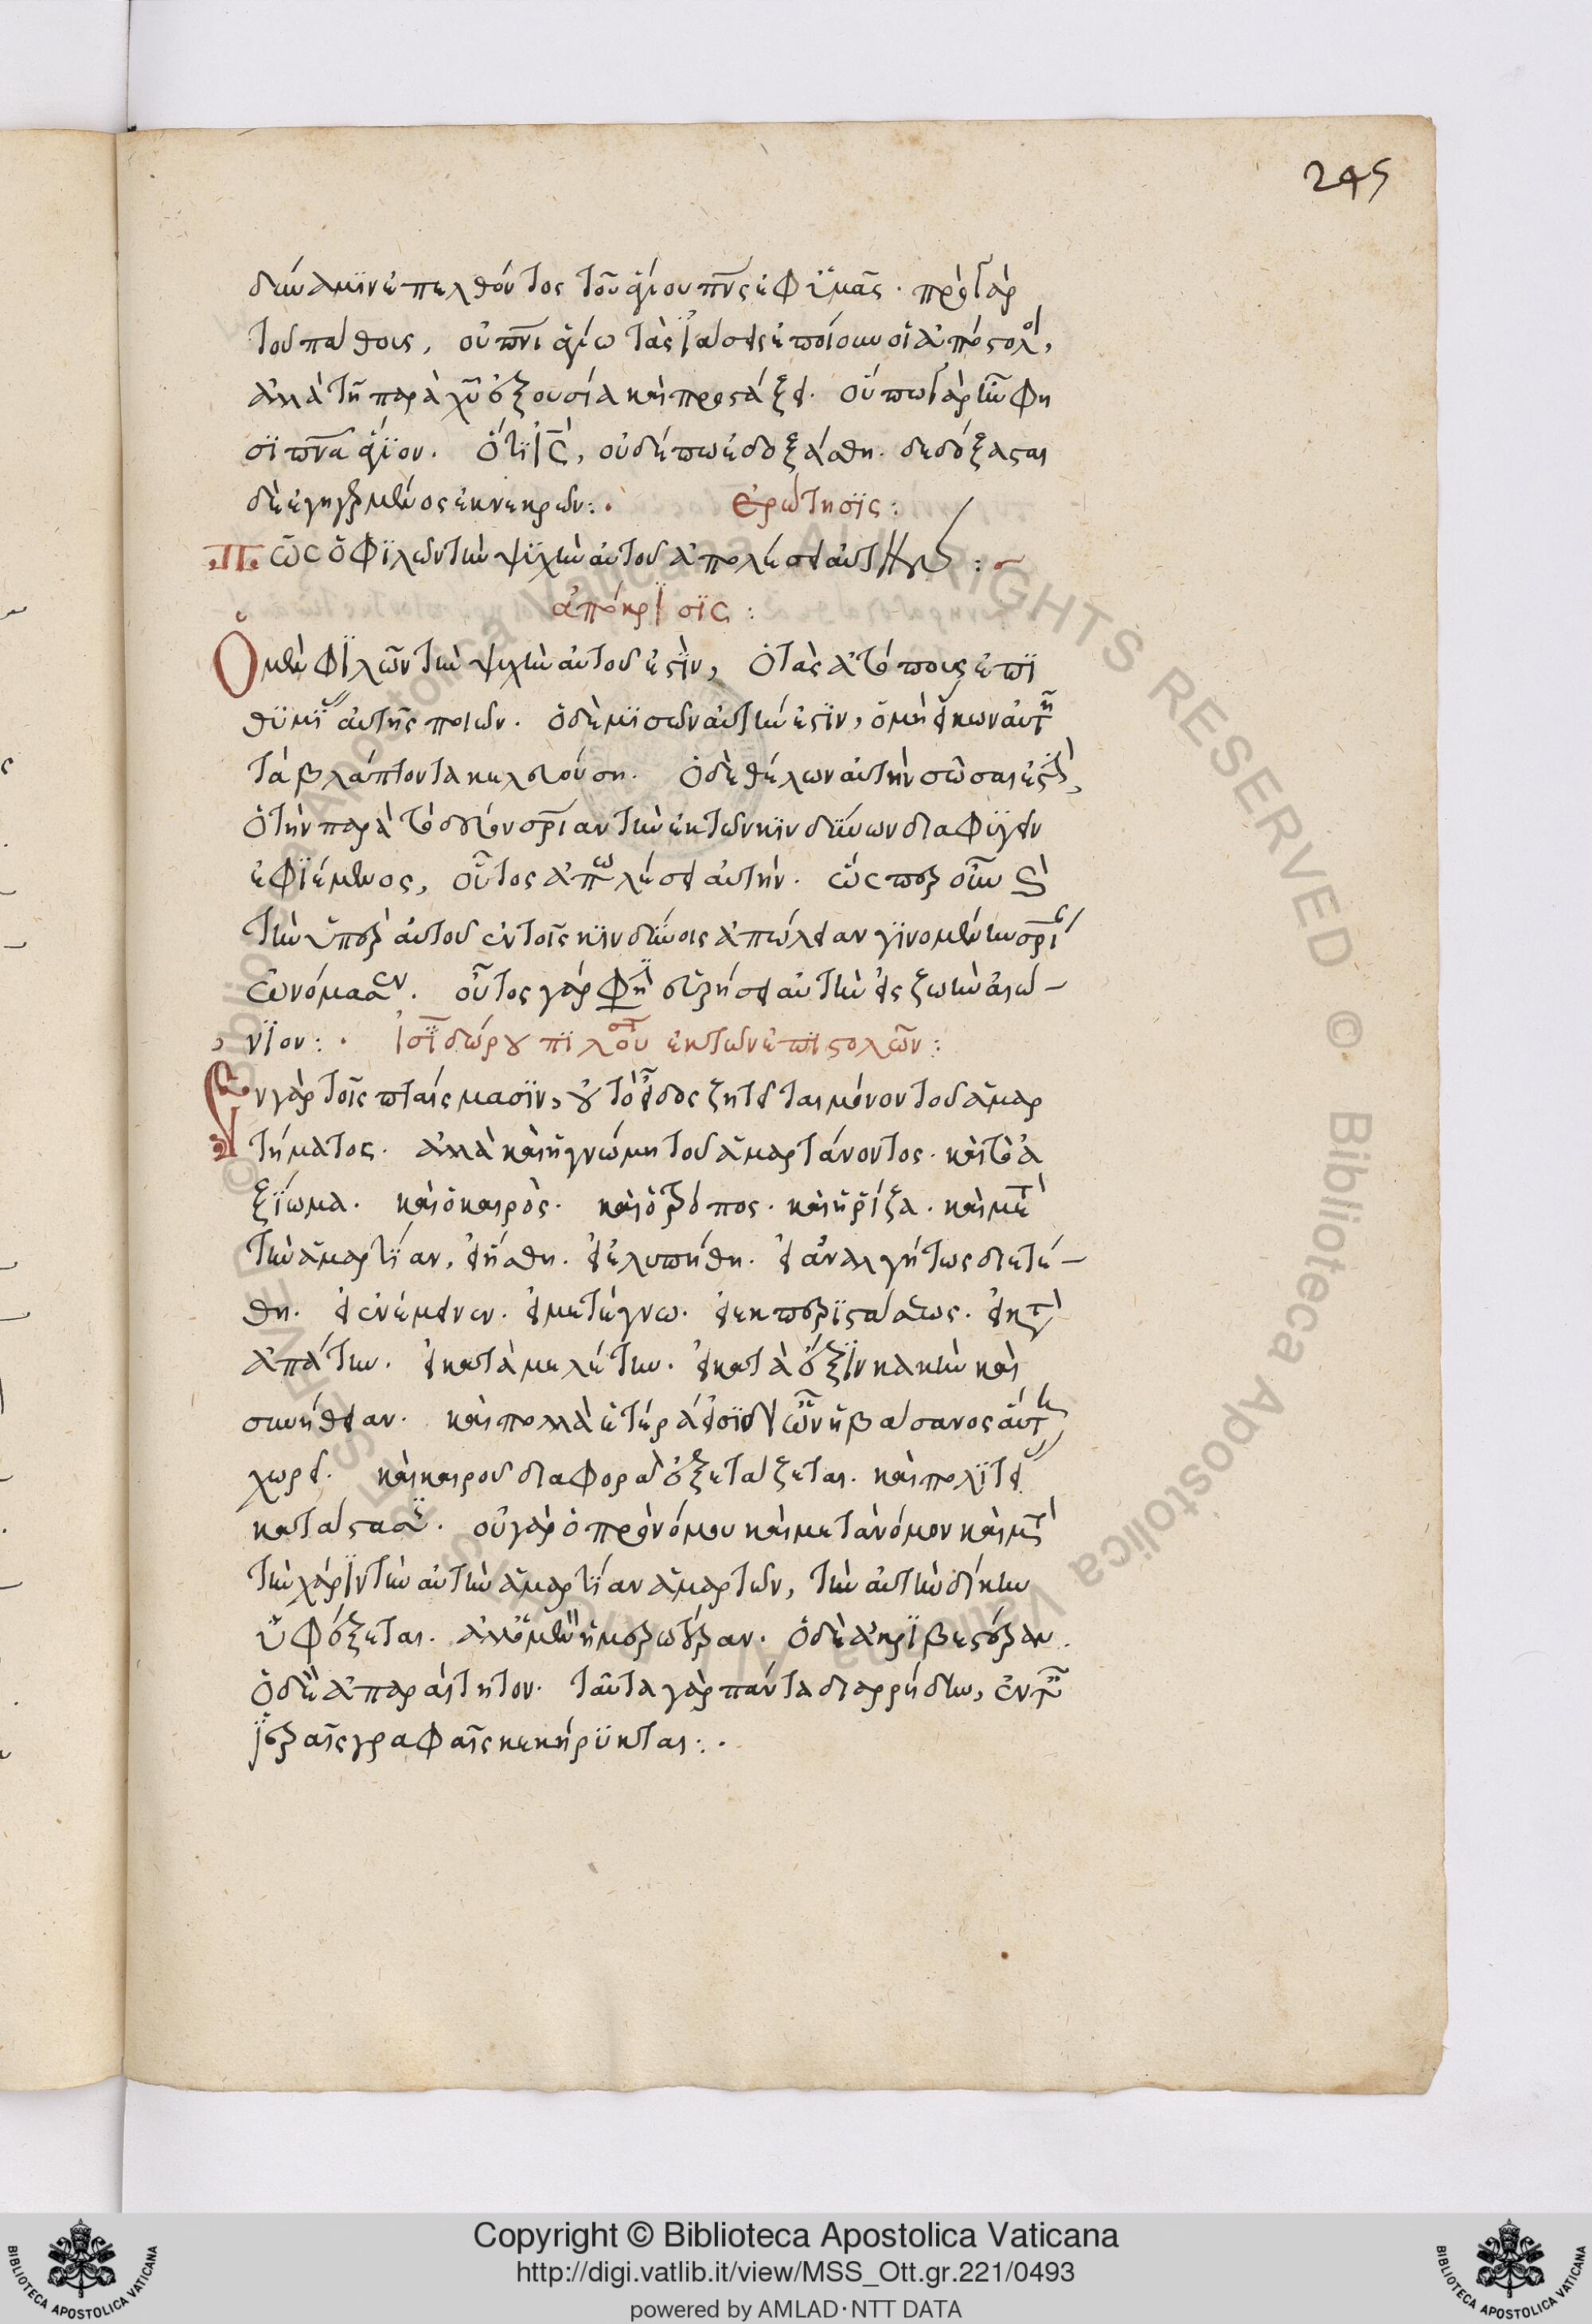 245
δύναμιν ἐπελθόντος τοῦ ἁγίου πνς ἐφ ὑμᾶς. πρὸ γὰρ
τοῦ πάθους, οὐ πνι ἁγίω τὰς ἰάσεις ἐποίουν οἱ ἀπόστολοι,
ἀλλὰ τῆ παρὰ χυ ἐξουσία καὶ προστάξει. οὔπω γὰρ ἦν φη
σὶ πνα ἅγιον. ὅτι ις, οὐδέπω ἐδοξάσθη. δεδόξασται
δὲ ἐγηγερμένος ἐκ νεκρῶν:. ἐρώτησις:
Πῶς ὁ φιλῶν τὴν ψυχὴν αὐτοῦ ἀπολέσει αὐτήν:
ἀπόκρισις:
Ὁ μὲν φιλῶν τὴν ψυχὴν αὐτοῦ ἐστὶν, ὁ τὰς ἀτόπους ἐπι
θυμίας αὐτῆς ποιῶν. ὁ δὲ μισῶν αὐτὴν ἐστὶν, ὁ μὴ εἴκων αὐτῆ
τὰ βλάπτοντα κελευούση. ὁ δὲ θέλων αὐτὴν σῶσαι ἐστὶ,
ὁ τὴν παρὰ τοσοῦτον σρίαν τὴν ἐκ τῶν κινδύνων διαφυγεῖν
ἐφιέμενος, οὗτος ἀπωλέσει αὐτήν. ὥσπερ οὖν καὶ
τὴν ὑπὲρ αὐτοῦ ἐν τοῖς κινδύνοις ἀπώλειαν γινομένην σρίας
ὠνόμασεν. οὗτος γὰρ φησὶ εὑρήσει αὐτὴν εἰς ζωὴν αἰώ-
νιον:. ἰσιδώρου πιλουσ ἐκ τῶν ἐπιστολῶν:
Ἐν γὰρ τοῖς πταίσμασιν, οὐ τὸ εἶδος ζητεῖται μόνον τοῦ ἁμαρ
τήματος. ἀλλὰ καὶ ἡ γνώμη τοῦ ἁμαρτάνοντος. καὶ τὸ ἀ
ξίωμα. καὶ ὁ καιρὸς. καὶ ὁ τρόπος. καὶ ἡ ῥίζα. καὶ μετὰ
τὴν ἁμαρτίαν, εἰ ἥσθη. εἰ ἐλυπήθη. εἰ ἀναλγήτως διετέ-
θη. εἰ ἐνέμεινεν. εἰ μετέγνω. εἰ ἐκ περιστάσεως. εἰ κατὰ
ἀπάτην. εἰ κατὰ μελέτην. εἰ κατὰ ἕξιν κακὴν καὶ
συνήθειαν. καὶ πολλὰ ἕτερά εἰσι δι ὧν ἡ βάσανος αὐτη
χωρεῖ. καὶ καιροῦ διαφορὰ ἐξετάζεται. καὶ πολιτείας
κατάστασις. οὐ γὰρ ὁ πρὸ νόμου καὶ μετὰ νόμον καὶ μετὰ
τὴν χάριν τὴν αὐτὴν ἁμαρτίαν ἁμαρτῶν, τὴν αὐτὴν δίκην
ὑφέξεται. ἀλλ ὁ μὲν ἡμερωτέραν. ὁ δὲ ἀκριβεστέραν.
ὁ δὲ ἀπαραίτητον. ταῦτα γὰρ πάντα διαρρήδην, ἐν ταῖς
ἱεραῖς γραφαῖς κεκήρυκται:.
Copyright © Biblioteca Apostolica Vaticana
http://digi.vatlib.it/view/MSS_Ott.gr.221/0493
powered by AMLAD·NTT DATA